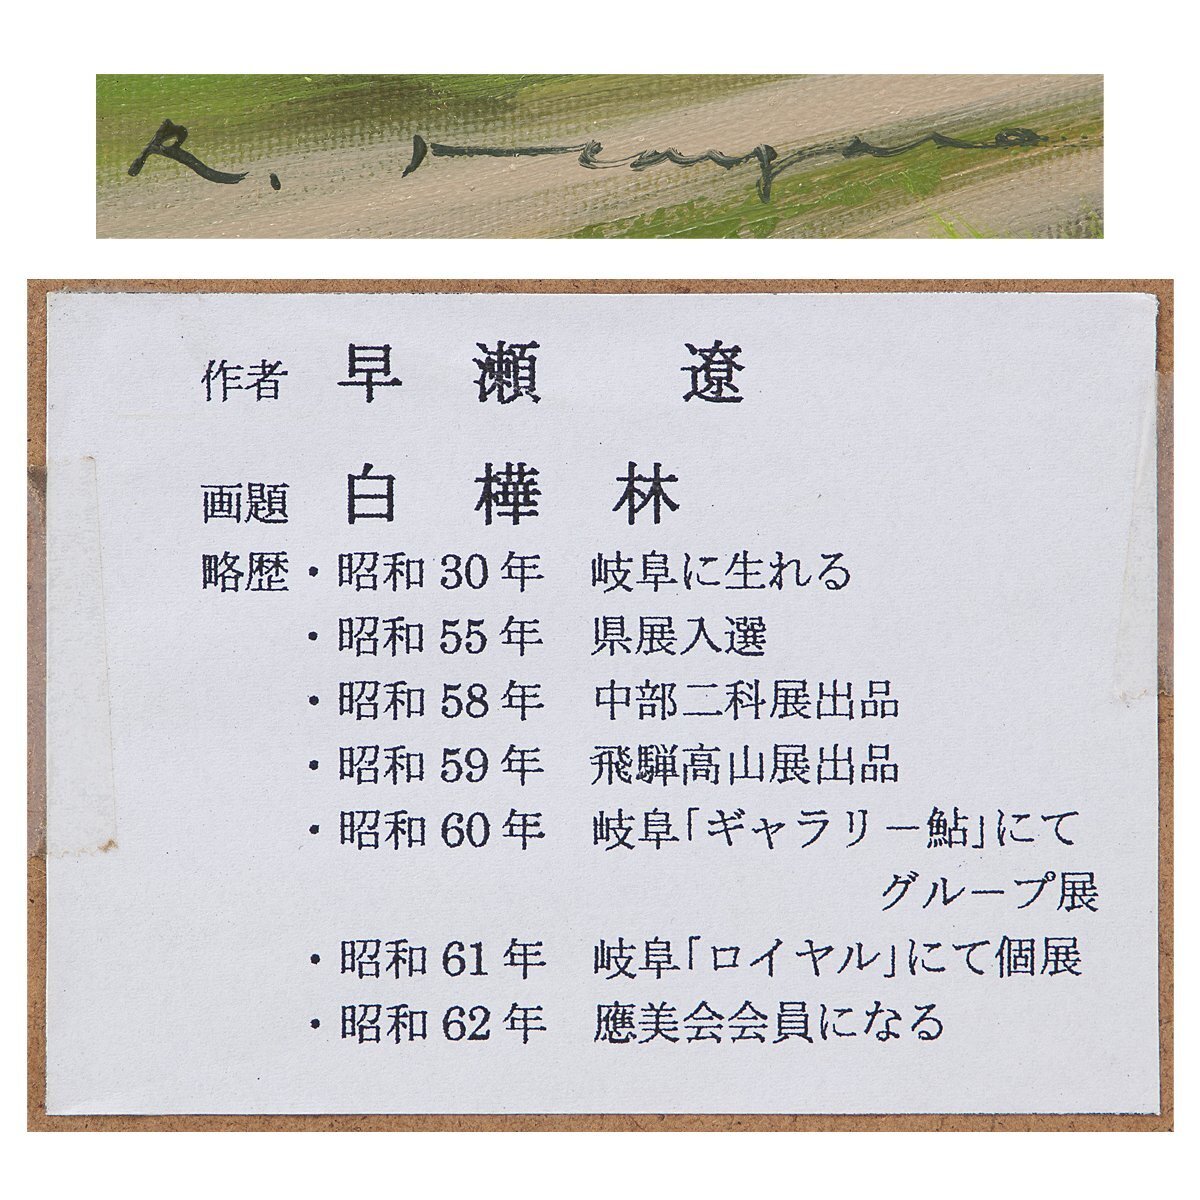 R. Hayase
作者 早瀬 遼
画題 白樺林
略歴・昭和30年 岐阜に生れる
・昭和55年 県展入選
・昭和58年 中部二科展出品
・昭和59年 飛騨高山展出品
・昭和60年 岐阜「ギャラリー鮎」にて
グループ展
・昭和61年 岐阜「ロイヤル」にて個展
・昭和62年 應美会会員になる